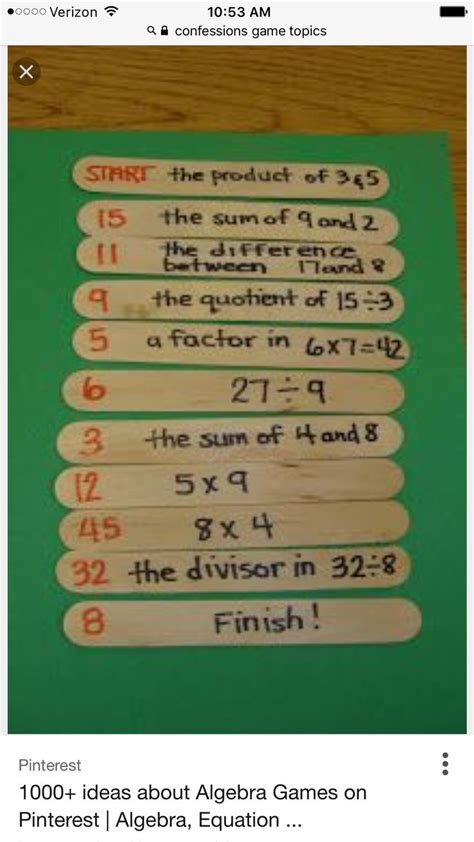 Verizon 10:53 AM
confessions game topics
START the product of 3&5
15 the sum of 9 and 2
11 the difference
between 17 and 8
9 the quotient of 15÷3
5 a factor in 6x7=42
6 27÷9
3 the sum of 4 and 8
12 5x9
45 8x4
32 the divisor in 32÷8
8 Finish!
Pinterest
1000+ ideas about Algebra Games on
Pinterest | Algebra, Equation ...